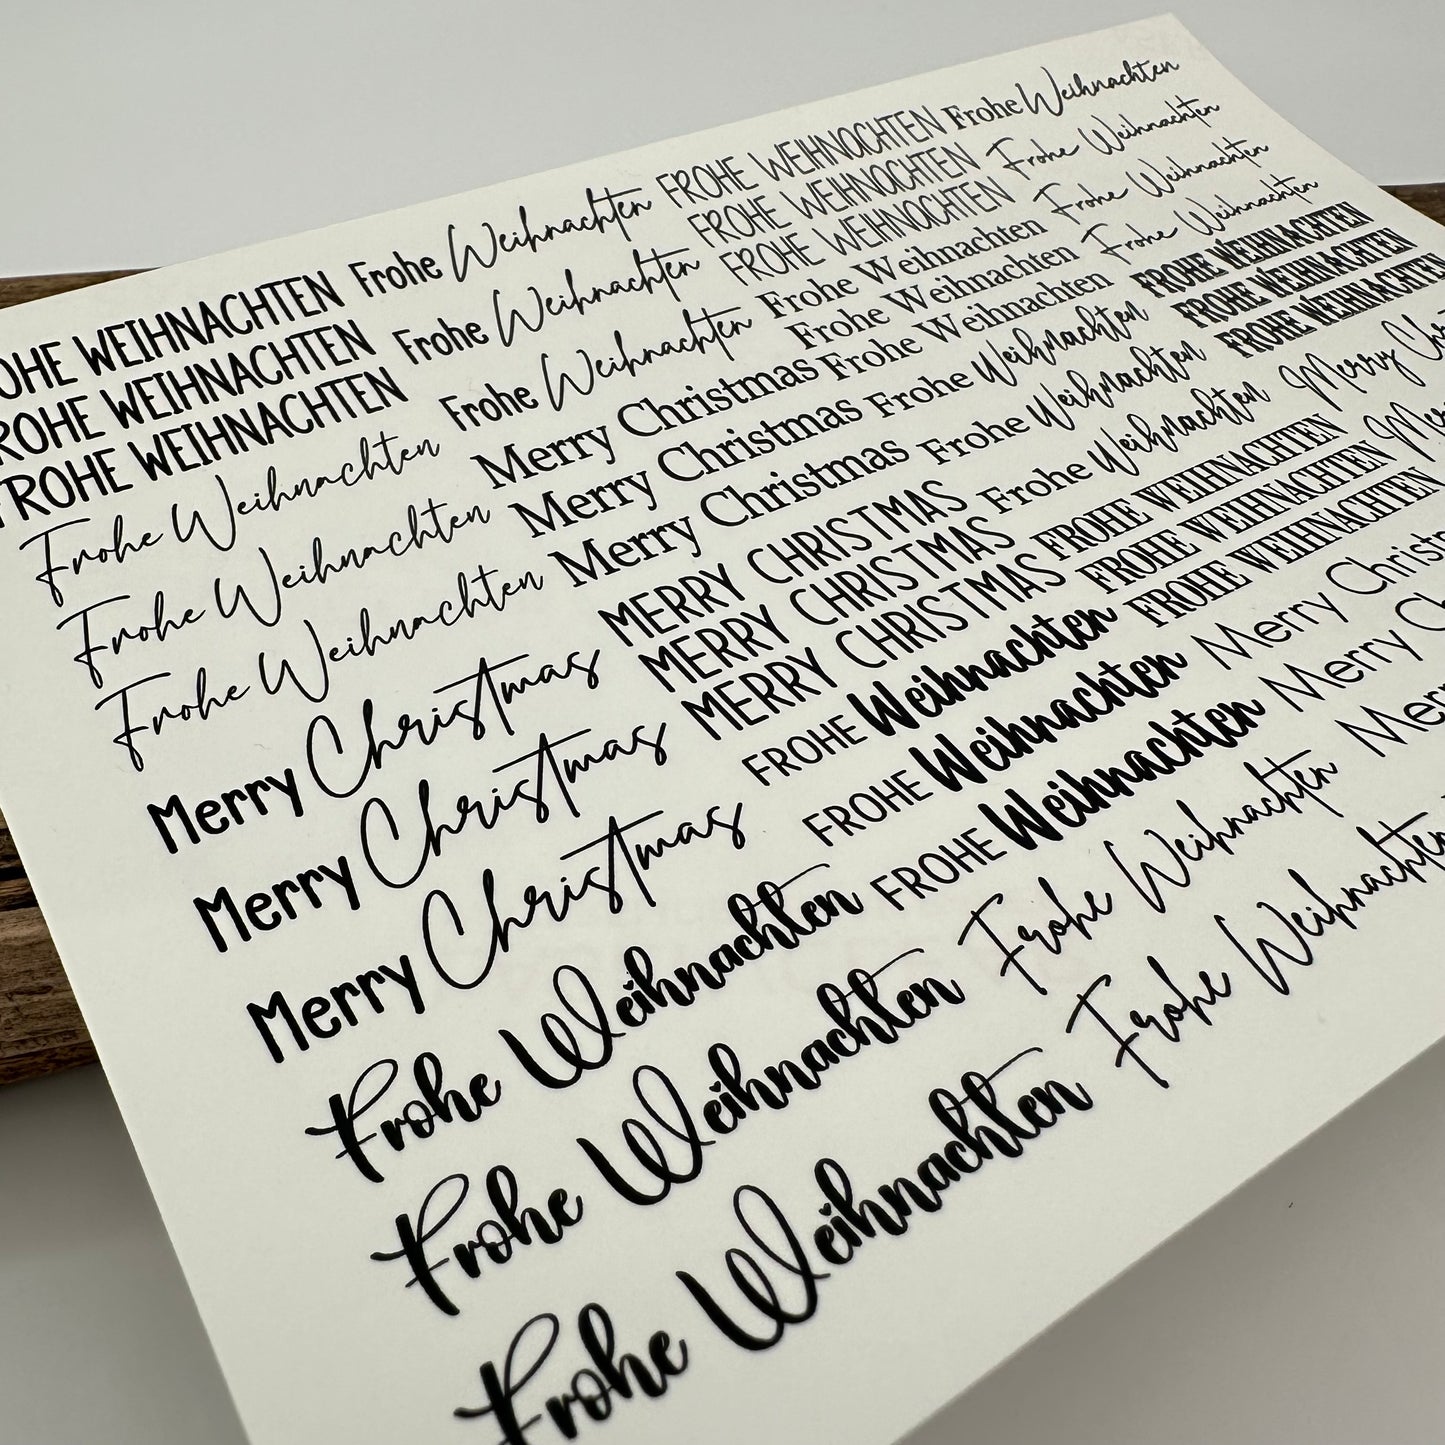 OHE WEIHNACHTEN
ROHE WEIHNACHTEN
FROHE WEIHNACHTEN
Frohe Weihnachten
Frohe Weihnachten
Frohe Weihnachten
Merry Christmas
Merry Christmas
Merry Christmas
Frohe Weihnachten
Frohe Weihnachten
Frohe Weihnachten
Frohe Weihnachten
Frohe Weihnachten
Frohe Weihnachten
Merry Christmas
Merry Christmas
Merry Christmas
MERRY CHRISTMAS
MERRY CHRISTMAS
MERRY CHRISTMAS
FROHE Weihnachten
FROHE Weihnachten
FROHE Weihnachten
Frohe Weihnachten
Frohe Weihnachten
FROHE WEIHNACHTEN
FROHE WEIHNACHTEN
FROHE WEIHNACHTEN
Frohe Weihnachten
Frohe Weihnachten
Frohe Weihnachten
Frohe Weihnachten
Frohe Weihnachten
Frohe Weihnachten
FROHE WEIHNACHTEN
FROHE WEIHNACHTEN
FROHE WEIHNACHTEN
Merry Christm
Merry C
Merry
Frohe Weihnachten
Frohe Weihnachten
Frohe Weihnachten
Frohe Weihnachten
FROHE WEIHNACHTEN
FROHE WEIHNACHTEN
FROHE WEIHNACHTEN
Merry Chr
Me